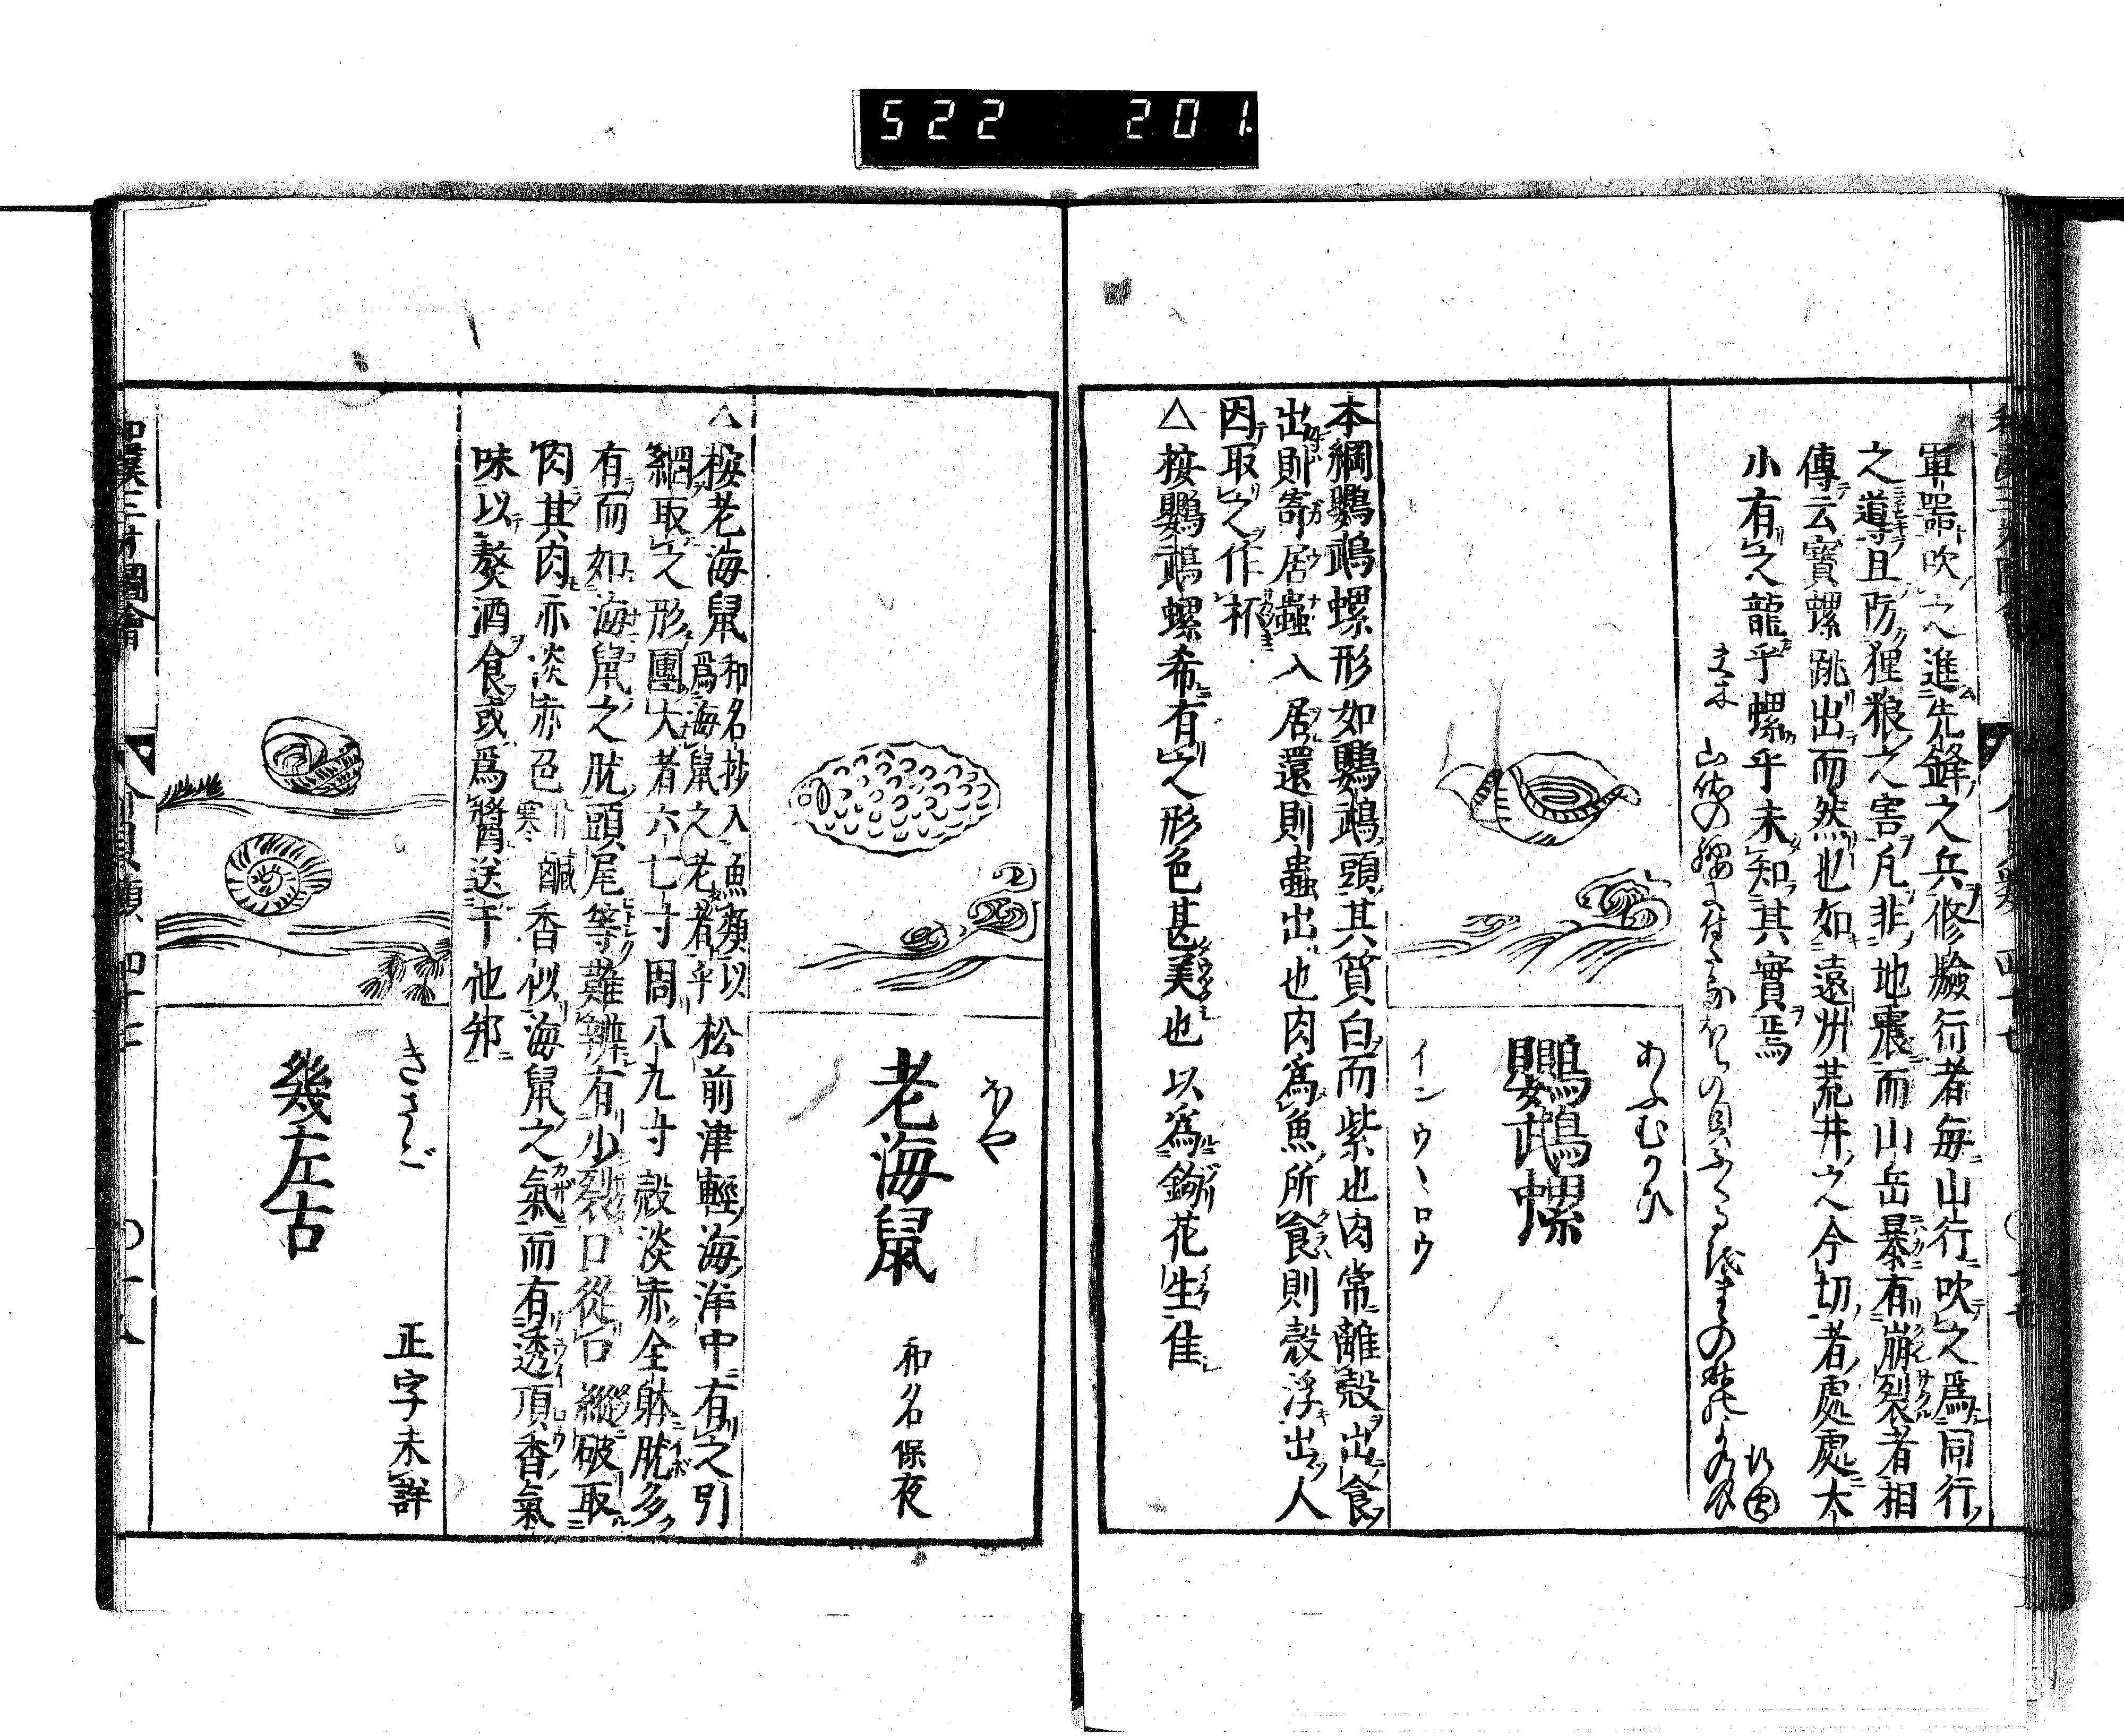 522 201.
軍噐吹之進先鋒之兵修驗行者毎山行吹之爲同行
之導且防狸狼之害凡非地震而山岳暴有崩裂者相
傳云寳螺跳出而然也如遠州荒井之今切者處處太
小有之龍乎螺乎未知其實焉
あふむかひ
鸚鵡螺
インウヽロウ
本綱鸚鵡螺形如鸚鵡頭其質白而紫也肉常離殻出食
出則寄居蟲入居還則蟲出也肉爲魚所食則殻浮出人
因取之作杯
△按鸚鵡螺希有之形色甚美也以爲鉤花生佳
ほや
老海鼠
和名保夜
△按老海鼠和名抄入魚類以爲海鼠之老者乎松前津輕海洋中有之引
網取之形團大者六七寸周八九寸殻淡赤全躰肬多
有而如海鼠之肬頭尾等難辨有少裂口從口縱破取
肉其肉亦淡赤色甘鹹寒香似海鼠之氣而有透頂香氣
味以熬酒食或爲醬送于他邦
きさご
幾左古
正字未詳